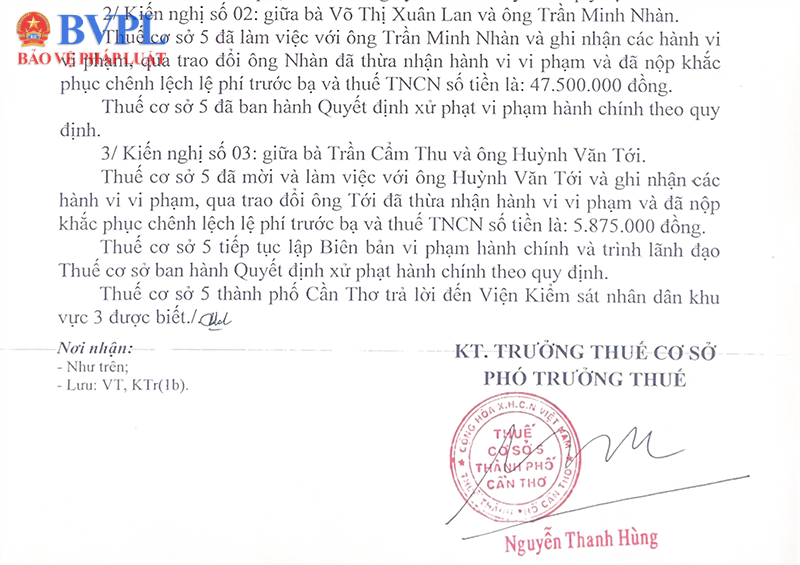 2/ Kiến nghị số 02: giữa bà Võ Thị Xuân Lan và ông Trần Minh Nhàn.
BVPL
BẢO VỆ PHÁP LUẬT
Thuế cơ sở 5 đã làm việc với ông Trần Minh Nhàn và ghi nhận các hành vi
vi phạm, qua trao đổi ông Nhàn đã thừa nhận hành vi vi phạm và đã nộp khắc
phục chênh lệch lệ phí trước bạ và thuế TNCN số tiền là: 47.500.000 đồng.
Thuế cơ sở 5 đã ban hành Quyết định xử phạt vi phạm hành chính theo quy
định.
3/ Kiến nghị số 03: giữa bà Trần Cẩm Thu và ông Huỳnh Văn Tới.
Thuế cơ sở 5 đã mời và làm việc với ông Huỳnh Văn Tới và ghi nhận các
hành vi vi phạm, qua trao đổi ông Tới đã thừa nhận hành vi vi phạm và đã nộp
khắc phục chênh lệch lệ phí trước bạ và thuế TNCN số tiền là: 5.875.000 đồng.
Thuế cơ sở 5 tiếp tục lập Biên bản vi phạm hành chính và trình lãnh đạo
Thuế cơ sở ban hành Quyết định xử phạt hành chính theo quy định.
Thuế cơ sở 5 thành phố Cần Thơ trả lời đến Viện Kiểm sát nhân dân khu
vực 3 được biết./.
Nơi nhận:
- Như trên;
- Lưu: VT, KTr(1b).
KT. TRƯỞNG THUẾ CƠ SỞ
PHÓ TRƯỞNG THUẾ
CỘNG HÒA X.H.C.N VIỆT NAM
THUẾ
CƠ SỞ 5
THÀNH PHỐ
CẦN THƠ
THUẾ THÀNH PHỐ CẦN THƠ
Nguyễn Thanh Hùng